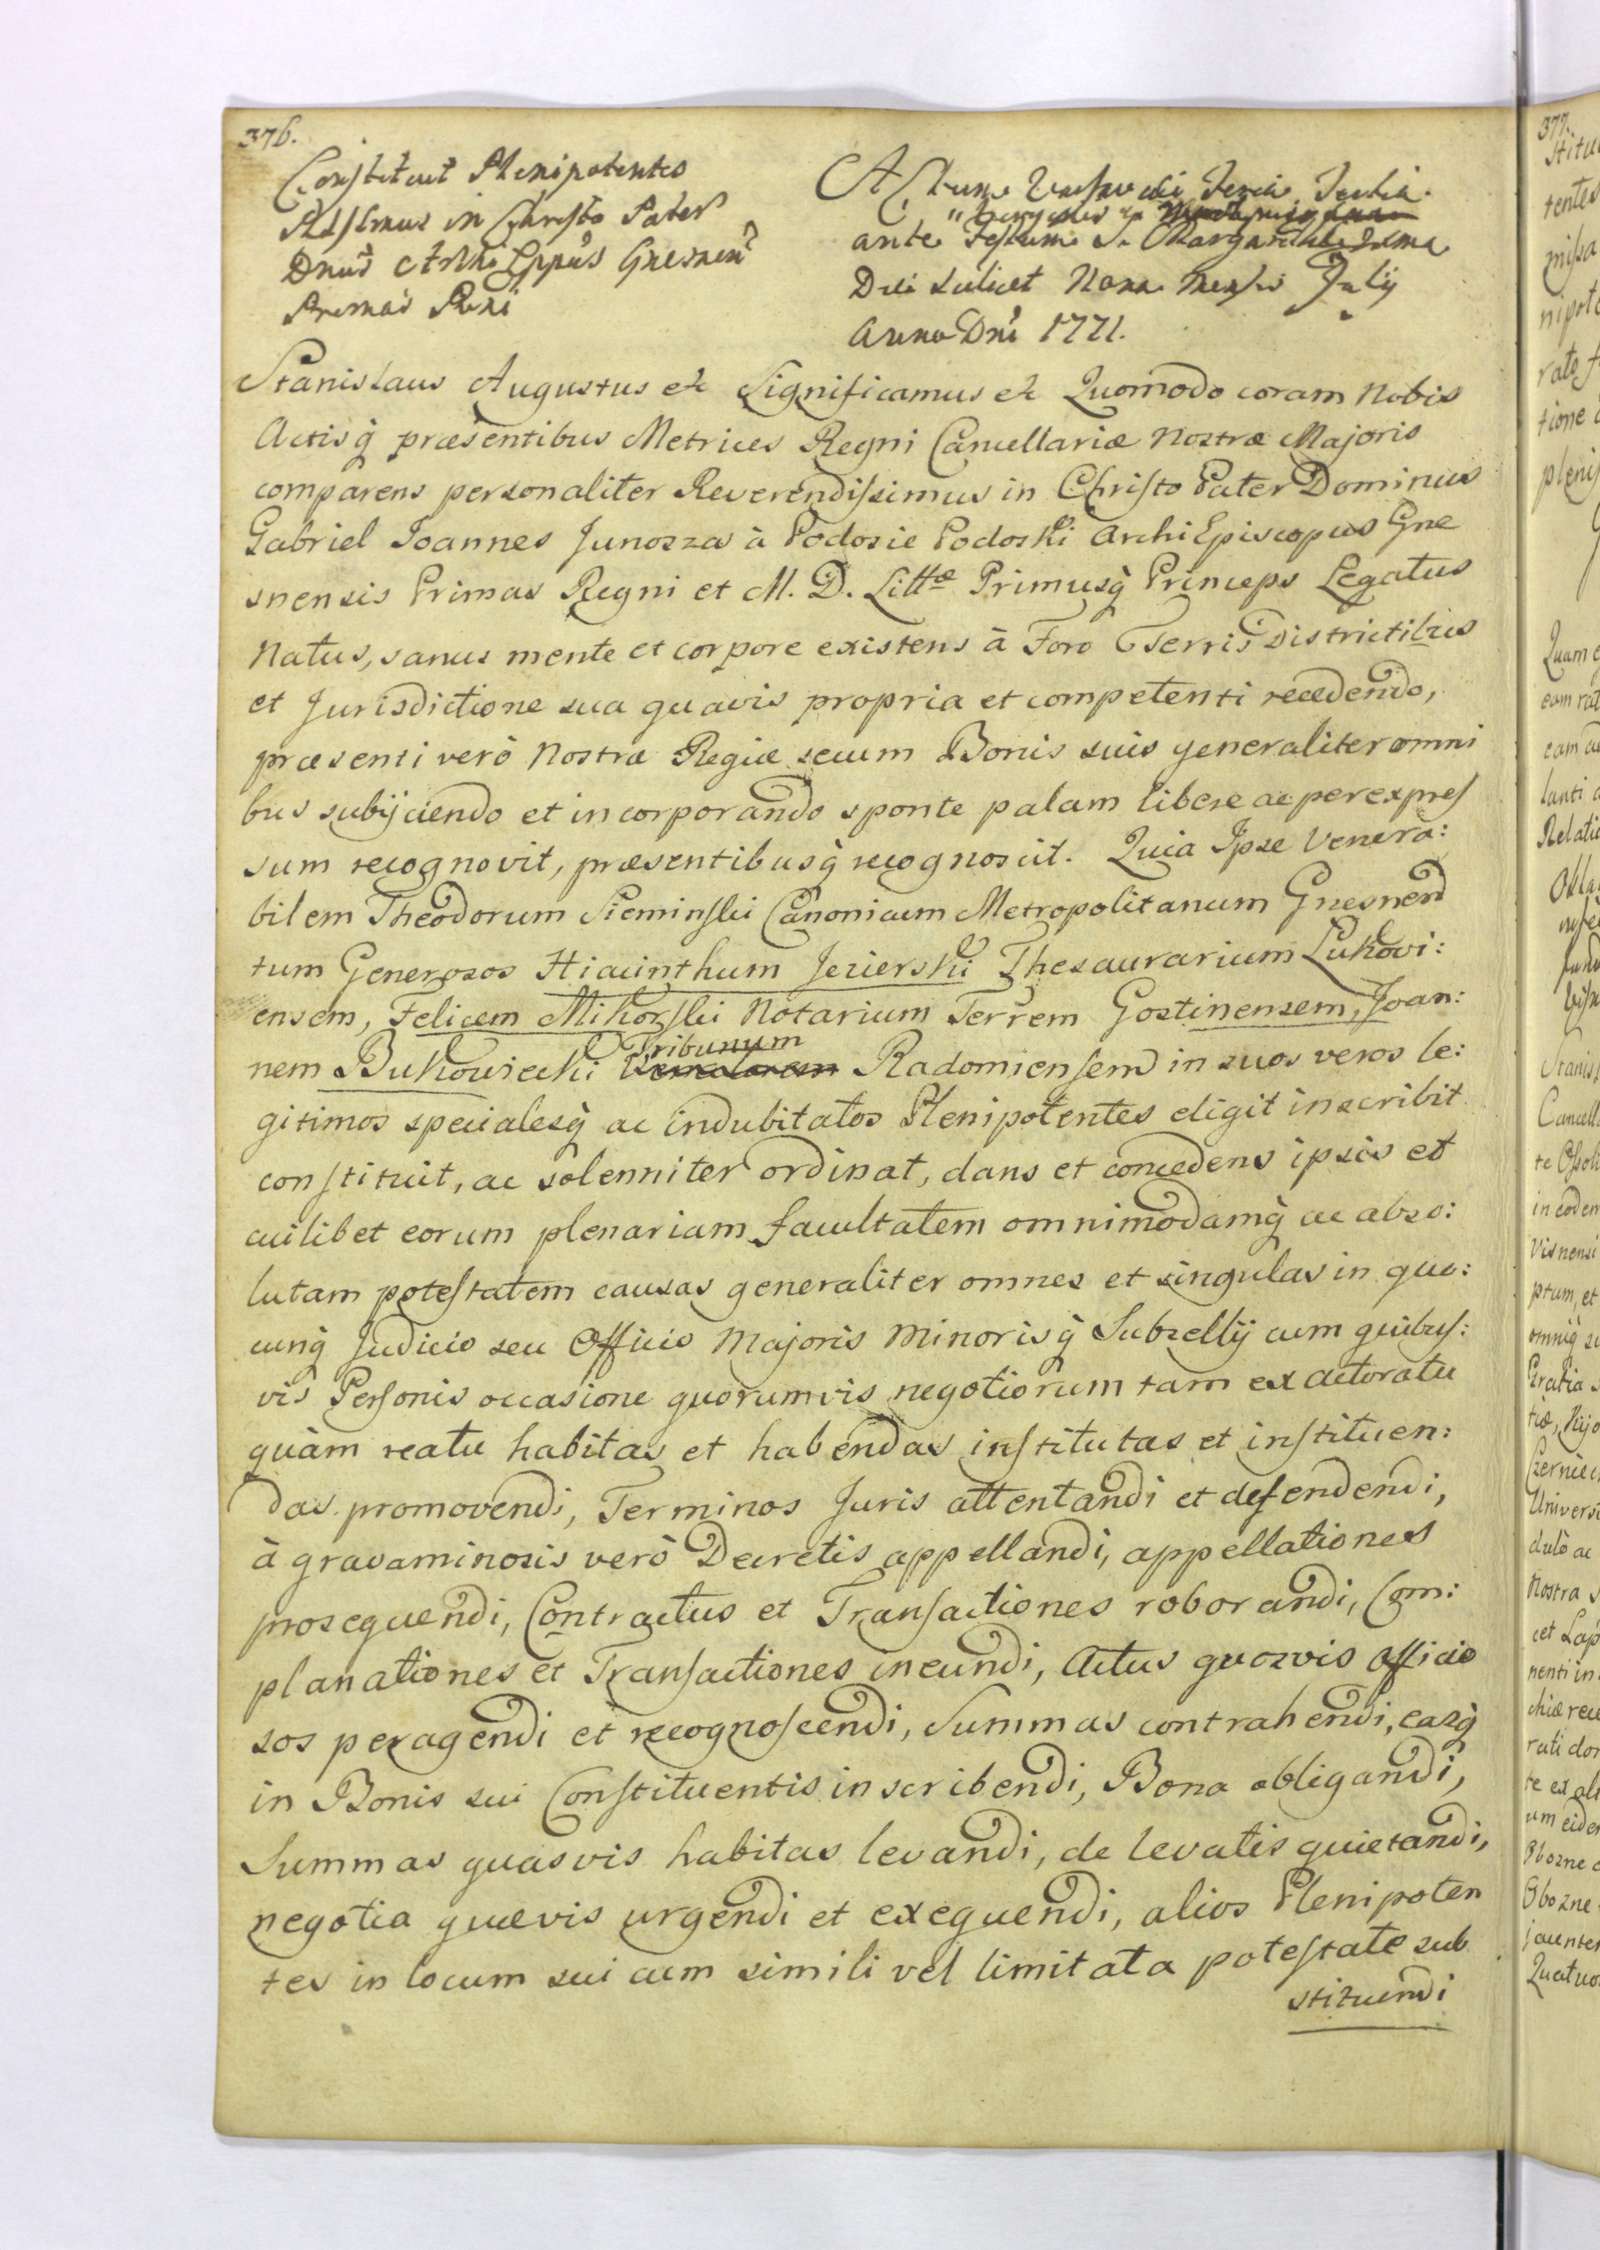 376.
Constituit Plenipotentes
Rdssimus in Christo Pater
Dnus Archi Eppus Gnesnen
Primas Reni
Actum Varsaviæ Feria Tertia
ante Festum S. Margarithæ
Die scilicet Nona Mensis Julij
Anno Dni 1771.
Stanislaus Augustus etc Significamus etc Quomodo coram Nobis
Actisq̀ præsentibus Metrices Regni Cancellariæ Nostræ Majoris
comparens personaliter Reverendissimus in Christo Pater Dominus
Gabriel Joannes Junosza à Podosie Podoski Archi Episcopus Gne
snensis Primas Regni et M. D. Littæ Primusq̀ Princeps Legatus
Natus, sanus mente et corpore existens à Foro Terris Districtibus
et Jurisdictione sua quavis propria et competenti recedendo,
præsenti verò Nostræ Regiæ secum Bonis suis generaliter omni
bus subijciendo et incorporando sponte palam libere ac per expres
sum recognovit, præsentibusq̀ recognoscit. Quia Ipse Venera:
bilem Theodorum Sieminski Canonicum Metropolitanum Gnesnen
tum Generosos Hiacinthum Jezierski Thesaurarium Lukovi:
ensem, Felicem Mikorski Notarium Terrem Gostinensem, Joan:
nem Bukowiecki Tribunum Radomiensem in suos veros le:
gitimos specialesq̀ ac indubitatos Plenipotentes eligit inscribit
constituit, ac solenniter ordinat, dans et concedens ipsis et
cuilibet eorum plenariam facultatem omnimodamq̀ ac abso:
lutam potestatem causas generaliter omnes et singulas in quo:
cunq̀ Judicio seu Officio Majoris Minorisq̀ Subsellij cum quibus:
vis Personis occasione quorumvis negotiorum tam ex actoratu
quàm reatu habitas et habendas institutas et instituen:
das promovendi, Terminos Juris attentandi et defendendi,
à gravaminosis verò Decretis appellandi, appellationes
prosequendi, Contractus et Transactiones roborandi, Com:
planationes et Transactiones ineundi, Actus quosvis officio
sos peragendi et recognoscendi, Summas contrahendi, easq̀
in Bonis sui Constituentis inscribendi, Bona obligandi,
Summas quasvis habitas levandi, de levatis quietandi,
negotia quævis urgendi et exequendi, alios Plenipoten
tes in locum sui cum simili vel limitata potestate sub
stituendi
377.